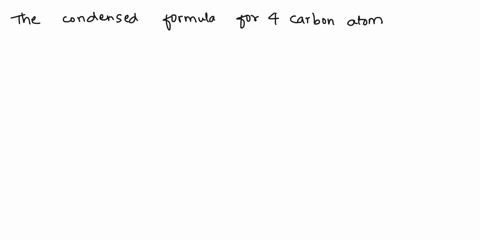 The condensed formula for 4 carbon atom